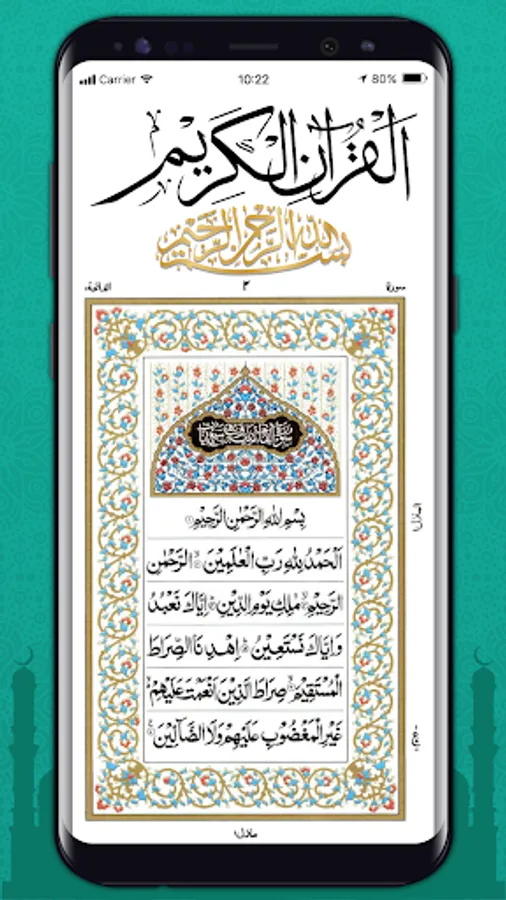 Carrier 10:22 80%
اَلْقُرْآنُ الْكَرِيْم
بسم الله الرحمن الرحيم
سورة ٢ الفاتحة
بِسْمِ اللهِ الرَّحْمٰنِ الرَّحِيْمِ
اَلْحَمْدُ لِلّٰهِ رَبِّ الْعٰلَمِيْنَ الرَّحْمٰنِ
الرَّحِيْمِ مٰلِكِ يَوْمِ الدِّيْنِ اِيَّاكَ نَعْبُدُ
وَاِيَّاكَ نَسْتَعِيْنُ اِهْدِنَا الصِّرَاطَ
الْمُسْتَقِيْمَ صِرَاطَ الَّذِيْنَ اَنْعَمْتَ عَلَيْهِمْ
غَيْرِ الْمَغْضُوْبِ عَلَيْهِمْ وَلَا الضَّآلِّيْنَ